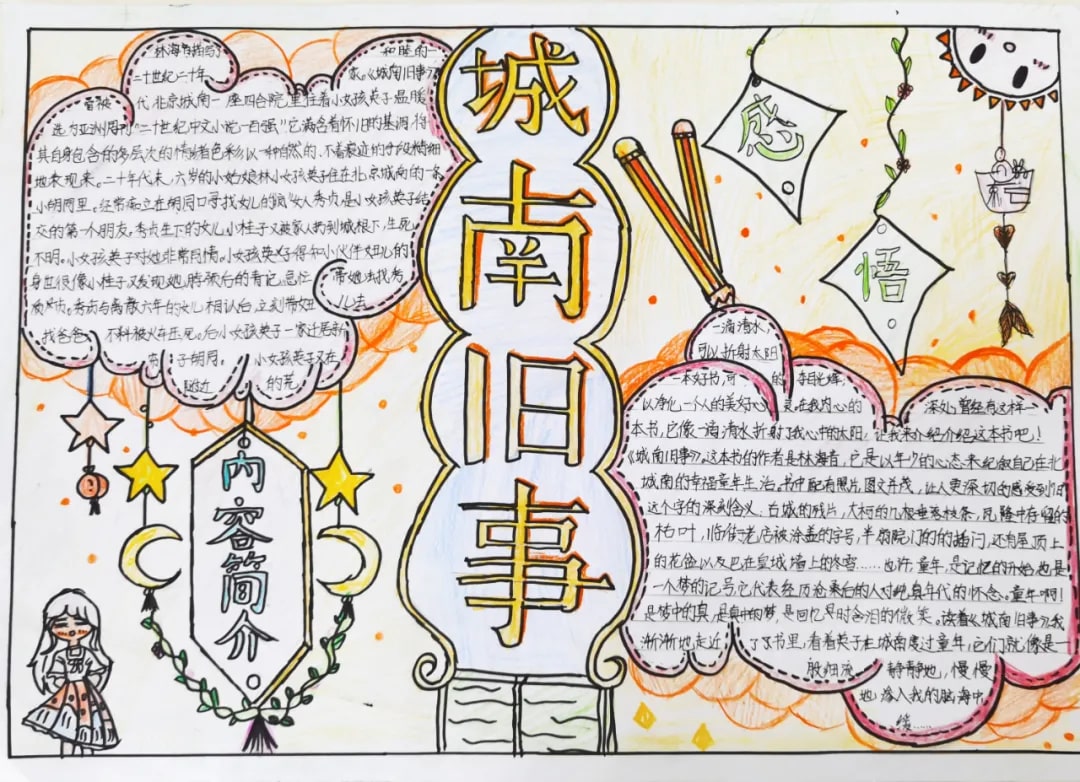 城南旧事
林海音描写了
和睦的一
二十世纪二十年
家。《城南旧事》
代,北京城南一座四合院里,住着小女孩英子温暖
选为亚洲周刊"二十世纪中文小说一百强"它满含着怀旧的基调,将
其自身包含的多层次的情绪色彩,以一种自然的、不着痕迹的手段精细
地表现来。二十年代末,六岁的小姑娘林小女孩英子住在北京城南的一条
小胡同里。经常痴立在胡同口寻找女儿的疯女人秀贞是小女孩英子结
交的第一个朋友,秀贞生下的女儿小桂子又被家人扔到城根下,生死
不明。小女孩英子对她非常同情。小女孩英子得知小伙伴妞儿的
身世很像小桂子又发现她脖颈后的青记,急忙
带她去找秀
秀贞与离散六年的女儿相认后,立刻带妞
儿去
找爸爸
不料被火车压死。后小女孩英子一家迁居新
子胡同。
小女孩英子又在
附近
的荒
内容简介
感
悟
一滴清水,
可以折射太阳
一本好书,可
的
以净化一个人的美好心灵,在我内心的
深处,曾经有这样一
本书,它像一滴清水折射了我心中的太阳,让我来介绍介绍这本书吧!
《城南旧事》。这本书的作者是林海音,它是以年少的心态来纪叙自己在北
城南的幸福童年生活。书中配有照片,图文并茂,让人更深切的感受到"旧"
这个字的深刻含义,古城的残片,大柯的几根垂落枝条,风隆中存留的
枯叶,临街老店被涂盖的字号,半扇院门的的插闩,还有屋顶上
的花盆以及巴在皇城墙上的冬容……也许,童年,是记忆的开始,也是
一个梦的记号,它代表经历沧桑后的人对纯真年代的怀念。童年啊!
是梦中的真,是真中的梦,是回忆是时含泪的微笑。读着《城南旧事》,我
渐渐地走近了了书里,看着英子在城南度过童年,它们就像是一
股细流
静静地,慢慢
地,流入我的脑海中,